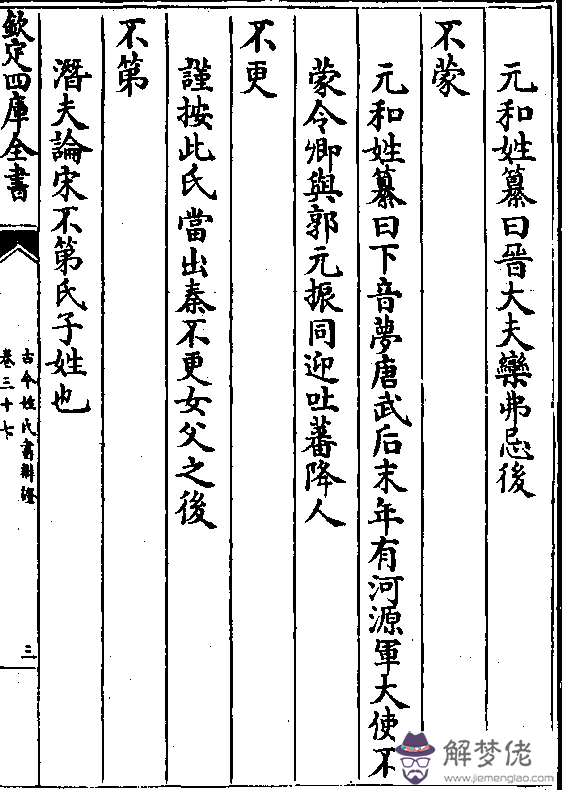 元和姓纂曰晉大夫欒弗忌後
不蒙
元和姓纂曰下音夢唐武后末年有河源軍大使不
蒙令卿與郭元振同迎吐蕃降人
不更
謹按此氏當出秦不更女父之後
不第
潛夫論宋不第氏子姓也
欽定四庫全書
古今姓氏書辯證
卷三十七
三
解梦佬
www.jiemenglao.com